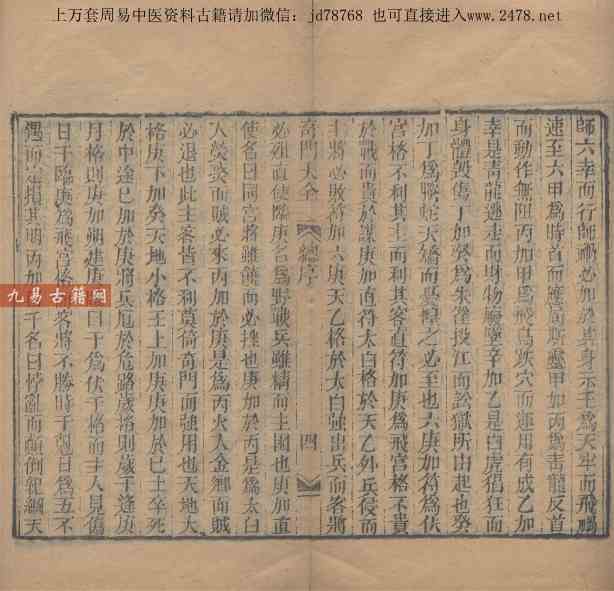 上万套周易中医资料古籍请加微信：jd78768 也可直接进入www.2478.net
師六幸而行師 必加於巽異是爲天 生而飛
速至六甲爲時首而應同斯靈甲加丙爲青龍反首
而動作無阻丙加甲爲飛鳥跌穴而運用有成乙加
辛是青龍逃走而財物 墜辛加乙是白虎猖狂而
身體毀傷丁加癸爲朱雀投江而訟獄所由起也癸
加丁爲騰蛇天矯而憂疑之必至也六庚加符爲伏
宮格不利其主而利其客直符加庚爲飛宮格不貴
於戰而貴於謀庚加直符太白格於天乙外兵侵而
主將必敗符加六庚天乙格於太白強出兵而客將
必殂直使臨庚名爲野戰兵雖精而主困也庚加直
使名曰同宮將雖饒而必挫也庚加於丙是爲太白
奇門大全 總序 四
入熒熒而賊必來丙加於庚是爲丙火入金鄉而賊
必退也此主客皆不利莫徜奇門而強用也天地大
格庚下加癸天地小格壬上加庚庚加於己士卒死
於中途己加於庚將兵厄於危路歲格則歲干逢庚
月格則庚加朔建庚 日干爲伏干格而主人見傷
日干臨庚爲飛宮格 客將不勝時干剋日爲五不
遇而 損其明丙加 干名曰悖亂而顛倒紀綱天
九易古籍网